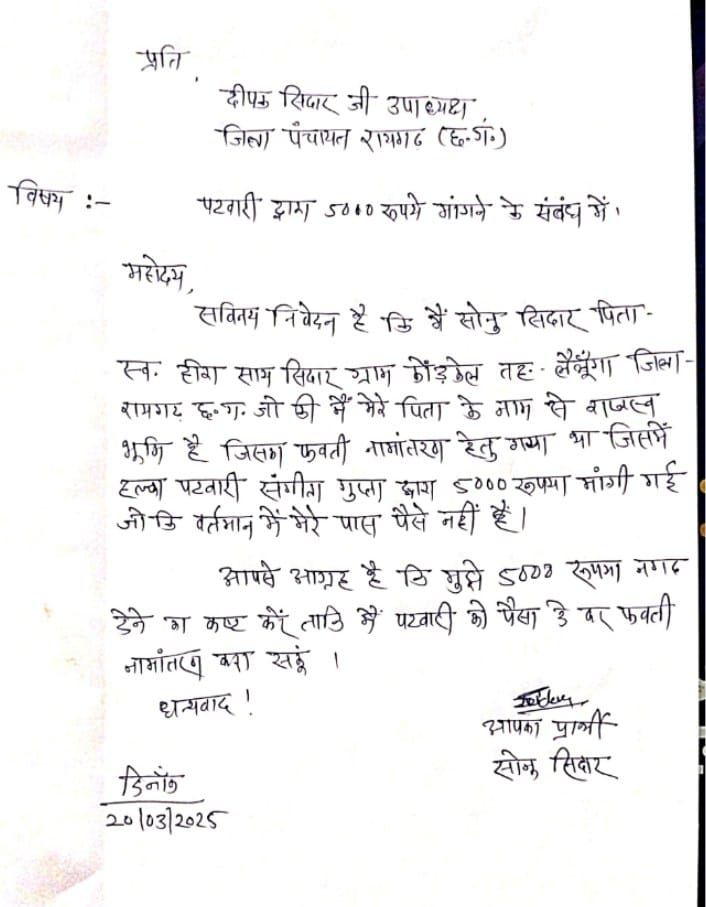 प्रति,
दीपक सिदार जी उपाध्यक्ष
जिला पंचायत रायगढ़ (छ.ग.)
विषय :- पटवारी द्वारा 5000 रूपये मांगने के संबंध में।
महोदय,
सविनय निवेदन है कि मैं सोनु सिदार पिता-
स्व. हीरा साय सिदार ग्राम कोंड़केल तह. लैलूँगा जिला-
रायगढ़ छ.ग. जो की मैं मेरे पिता के नाम से राजस्व
भूमि है जिसका फवती नामांतरण हेतु गया था जिसमें
हल्का पटवारी संगीता गुप्ता द्वारा 5000 रूपया मांगी गई
जो कि वर्तमान में मेरे पास पैसे नहीं हैं।
आपसे आग्रह है कि मुझे 5000 रूपया नगद
देने का कष्ट करें ताकि मैं पटवारी को पैसा दे कर फवती
नामांतरण करा सकूं ।
धन्यवाद !
आपका प्रार्थी
सोनु सिदार
दिनाँक
20/03/2025